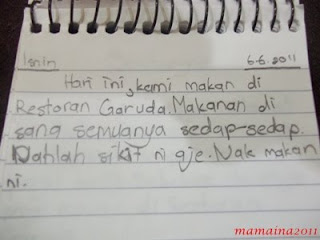 Isnin 6.6.2011
Hari ini, kami makan di
Restoran Garuda. Makanan di
sana semuanya sedap-sedap.
Dahlah sikit ni aje. Nak makan
ni.
mamaina2011